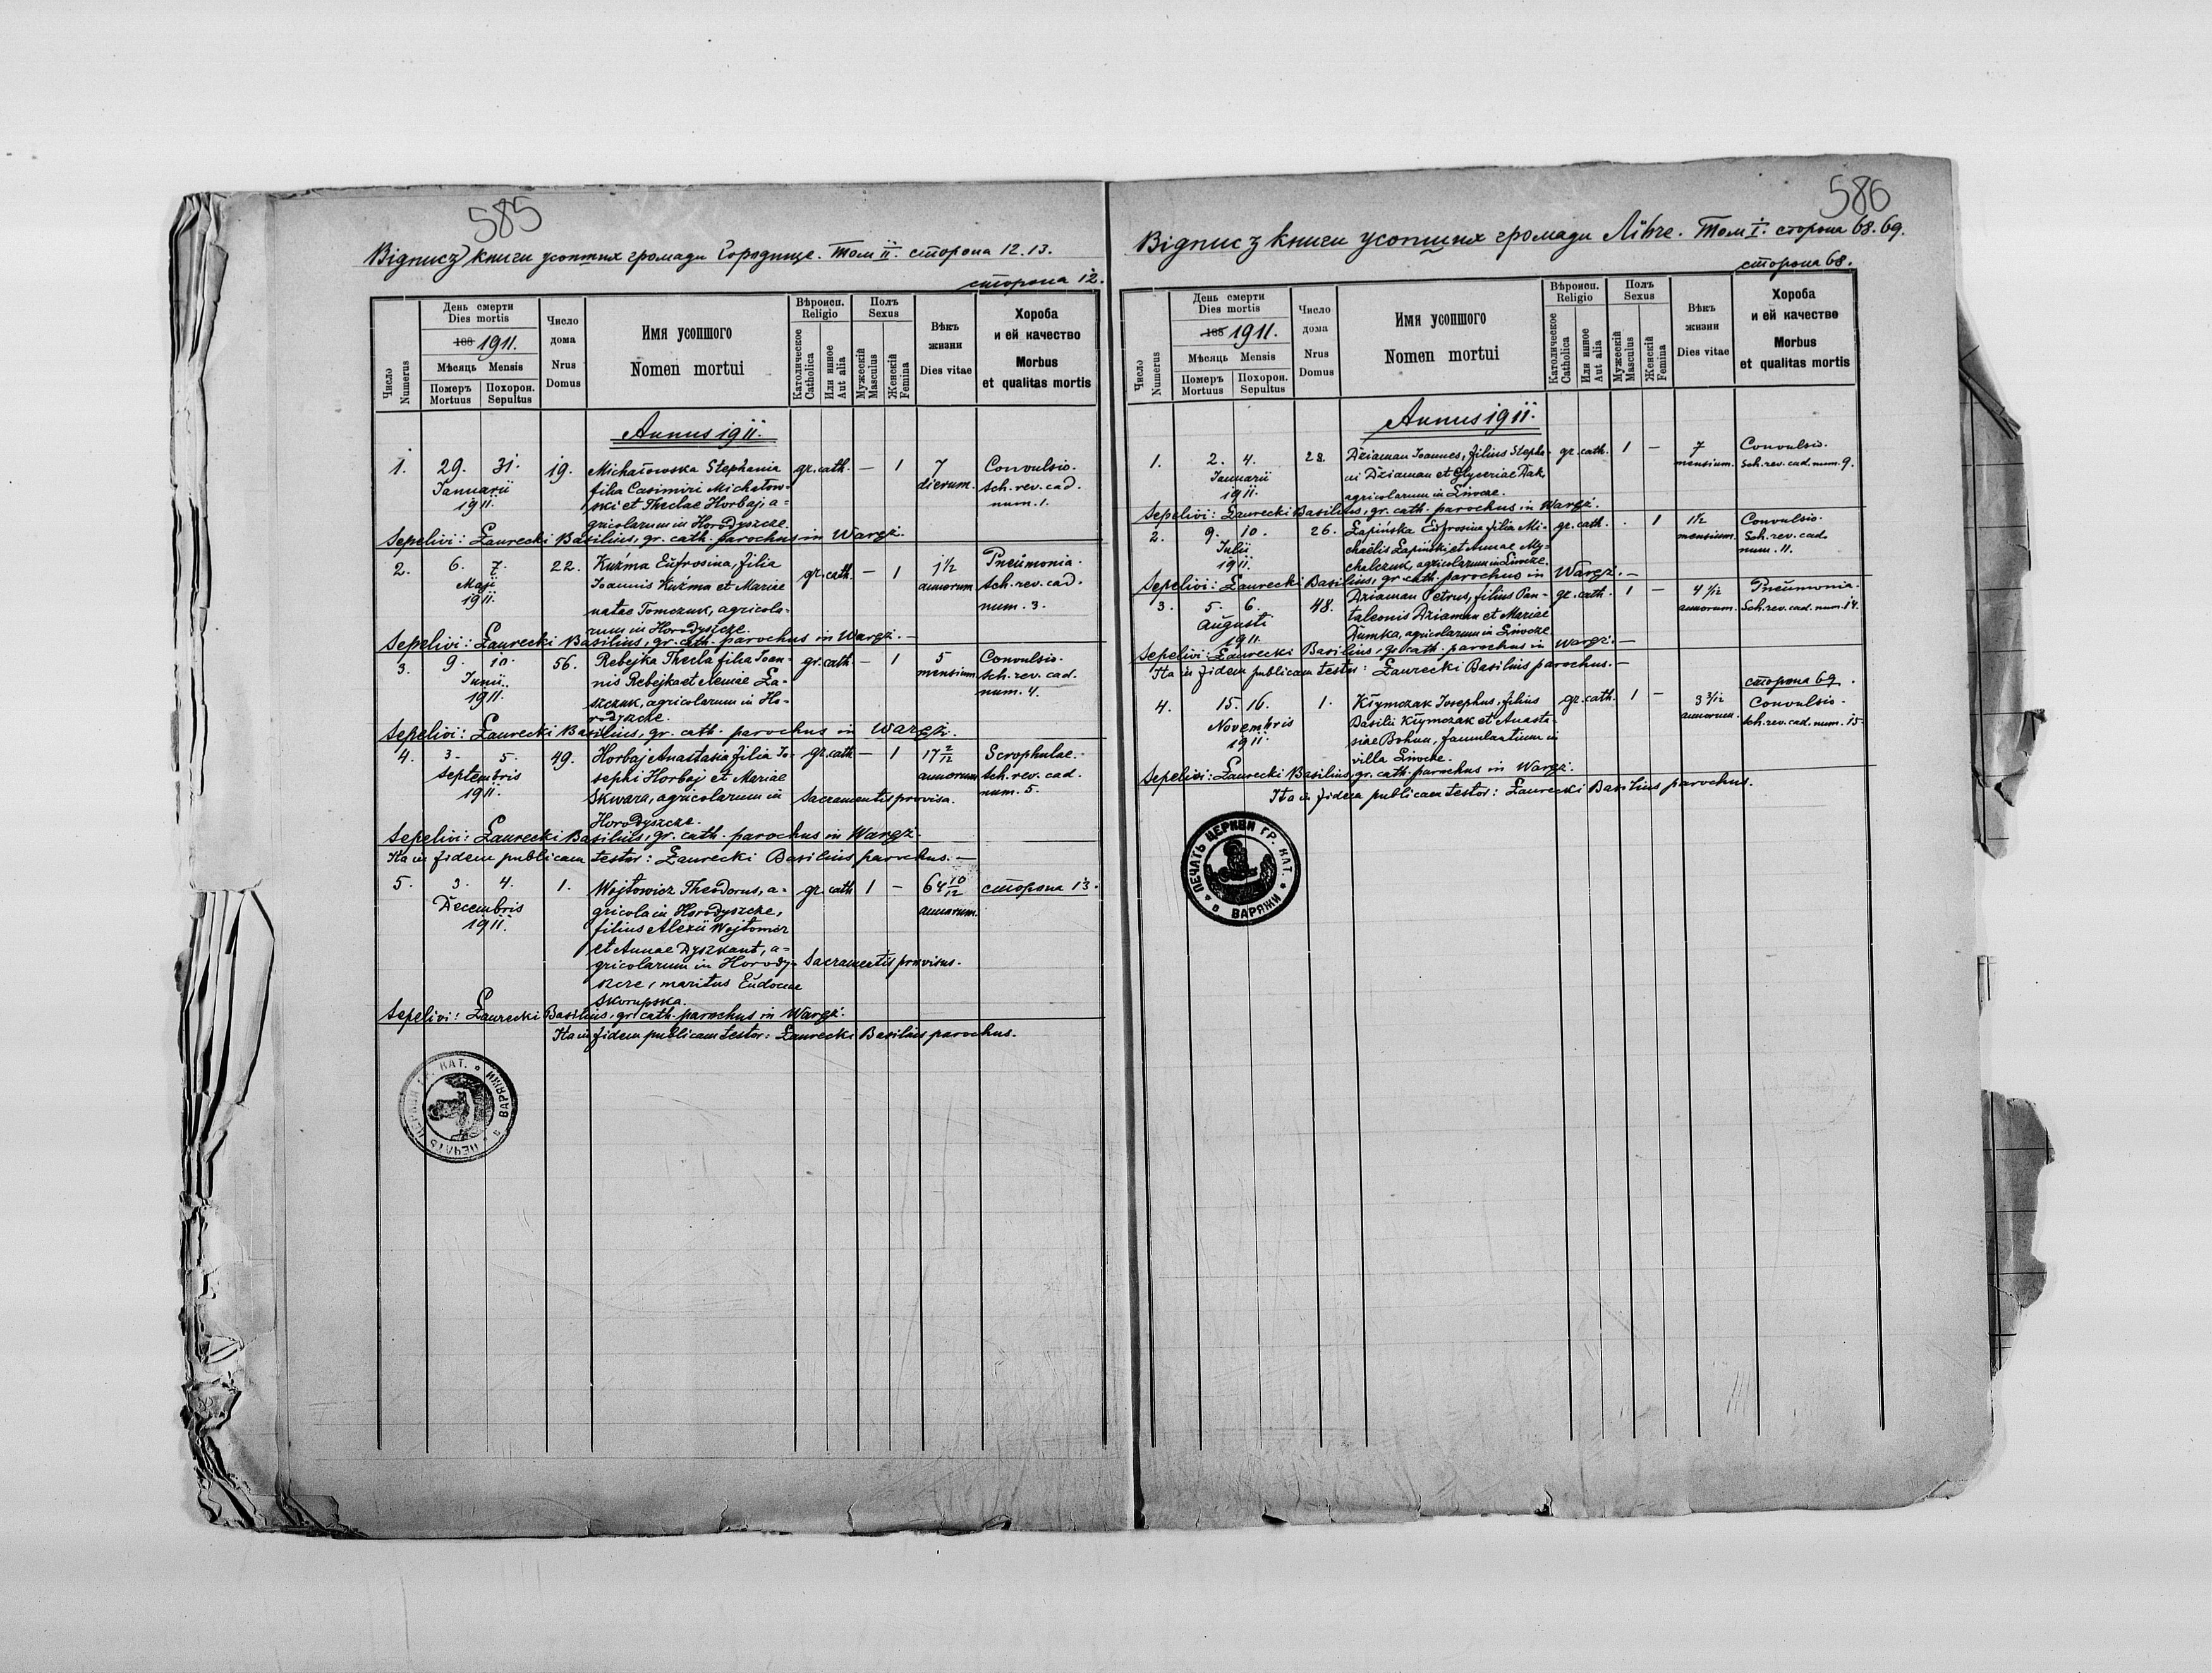 585
Відпис з книги усопших громади Городище. Том ІІ. сторона 12. 13.
сторона 12.
Число
Numerus
День смерти
Dies mortis
188 1911.
Мѣсяць Mensis
Померъ
Mortuus
Похорон.
Sepultus
Число
дома
Nrus
Domus
Имя усопшого
Nomen mortui
Вѣроисп.
Religio
Католическое
Catholica
Или инное
Aut alia
Полъ
Sexus
Мужескій
Masculus
Женскій
Femina
Вѣкъ
жизни
Dies vitae
Хороба
и ей качество
Morbus
et qualitas mortis
Annus 1911.
1. 29. 31. 19. Michałowska Stephania gr. cath. — 1 7 Convulsio.
Januarii filia Casimiri Michałow- dierum. Sch. rev. cad.
1911. ski et Theclae Horbaj, a- num. 1.
gricolarum in Horodyszcze.
Sepelivi: Łaurecki Basilius, gr. cath. parochus in Waręż.
2. 6. 7. 22. Kuźma Eufrosina, filia gr. cath. — 1 1½ Pneumonia.
Maji Joannis Kuźma et Mariae annorum Sch. rev. cad.
1911. natae Tomczuk, agricola- num. 3.
rum in Horodyszcze.
Sepelivi: Łaurecki Basilius, gr. cath. parochus in Waręż. —
3. 9. 10. 56. Rebejka Thecla filia Joan- gr. cath. — 1 5 Convulsio.
Junii nis Rebejka et Xeniae Ła- mensium Sch. rev. cad.
1911. szczuk, agricolarum in Ho- num. 4.
rodyszcze.
Sepelivi: Łaurecki Basilius, gr. cath. parochus in Waręż.
4. 3. 5. 49. Horbaj Anastasia filia Jo- gr. cath — 1 17 2/12 Scrophulae.
Septembris sephi Horbaj et Mariae annorum Sch. rev. cad.
1911. Skwara, agricolarum in Sacramentis provisa. num. 5.
Horodyszcze.
Sepelivi: Łaurecki Basilius, gr. cath. parochus in Waręż.
Ita in fidem publicam testor: Łaurecki Basilius parochus. —
5. 3. 4. 1. Wojtowicz Theodorus, a- gr. cath 1 — 64 10/12 сторона 13.
Decembris gricola in Horodyszcze, annorum.
1911. filius Alexii Wojtowicz
et Annae Dyszkant, a-
gricolarum in Horody- Sacramentis provisus.
szcze, maritus Eudociae
Skorupska.
Sepelivi: Łaurecki Basilius, gr. cath. parochus in Waręż.
Ita in fidem publicam testor: Łaurecki Basilius parochus.
ПЕЧАТЬ ЦЕРКВИ ГР. КАТ. в ВАРЯЖИ
586
Відпис з книги усопших громади Лівче. Том І. сторона 68. 69.
сторона 68.
Число
Numerus
День смерти
Dies mortis
188 1911.
Мѣсяць Mensis
Померъ
Mortuus
Похорон.
Sepultus
Число
дома
Nrus
Domus
Имя усопшого
Nomen mortui
Вѣроисп.
Religio
Католическое
Catholica
Или инное
Aut alia
Полъ
Sexus
Мужескій
Masculus
Женскій
Femina
Вѣкъ
жизни
Dies vitae
Хороба
и ей качество
Morbus
et qualitas mortis
Annus 1911.
1. 2. 4. 28. Dziaman Joannes, filius Stepha- gr. cath. 1 — 7 Convulsio.
Januarii ni Dziaman et Glyceriae Dak, mensium. Sch. rev. cad. num. 9.
1911. agricolarum in Liwcze.
Sepelivi: Łaurecki Basilius, gr. cath. parochus in Waręż.
2. 9. 10. 26. Łapińska Eufrosina filia Mi- gr. cath. . 1 1½ Convulsio.
Julii chaëlis Łapiński et Annae My- mensium. Sch. rev. cad.
1911. chalczuk, agricolarum in Liwcze. num. 11.
Sepelivi: Łaurecki Basilius, gr. cath. parochus in Waręż. —
3. 5. 6. 48. Dziaman Petrus, filius Pan- gr. cath. 1 — 4 1/12 Pneumonia.
Augusti taleonis Dziaman et Mariae annorum. Sch. rev. cad. num. 14.
1911. Dumka, agricolarum in Liwcze.
Sepelivi: Łaurecki Basilius, gr. cath. parochus in Waręż. —
Ita in fidem publicam testor: Łaurecki Basilius parochus. —
сторона 69.
4. 15. 16. 1. Kłymczak Josephus, filius gr. cath. 1 — 3 3/12 Convulsio.
Novembris Basilii Kłymczak et Anasta- annorum. Sch. rev. cad. num. 15.
1911. siae Bohun, famulantium in
villa Liwcze.
Sepelivi: Łaurecki Basilius, gr. cath. parochus in Waręż.
Ita in fidem publicam testor: Łaurecki Basilius parochus.
ПЕЧАТЬ ЦЕРКВИ ГР. КАТ. в ВАРЯЖИ